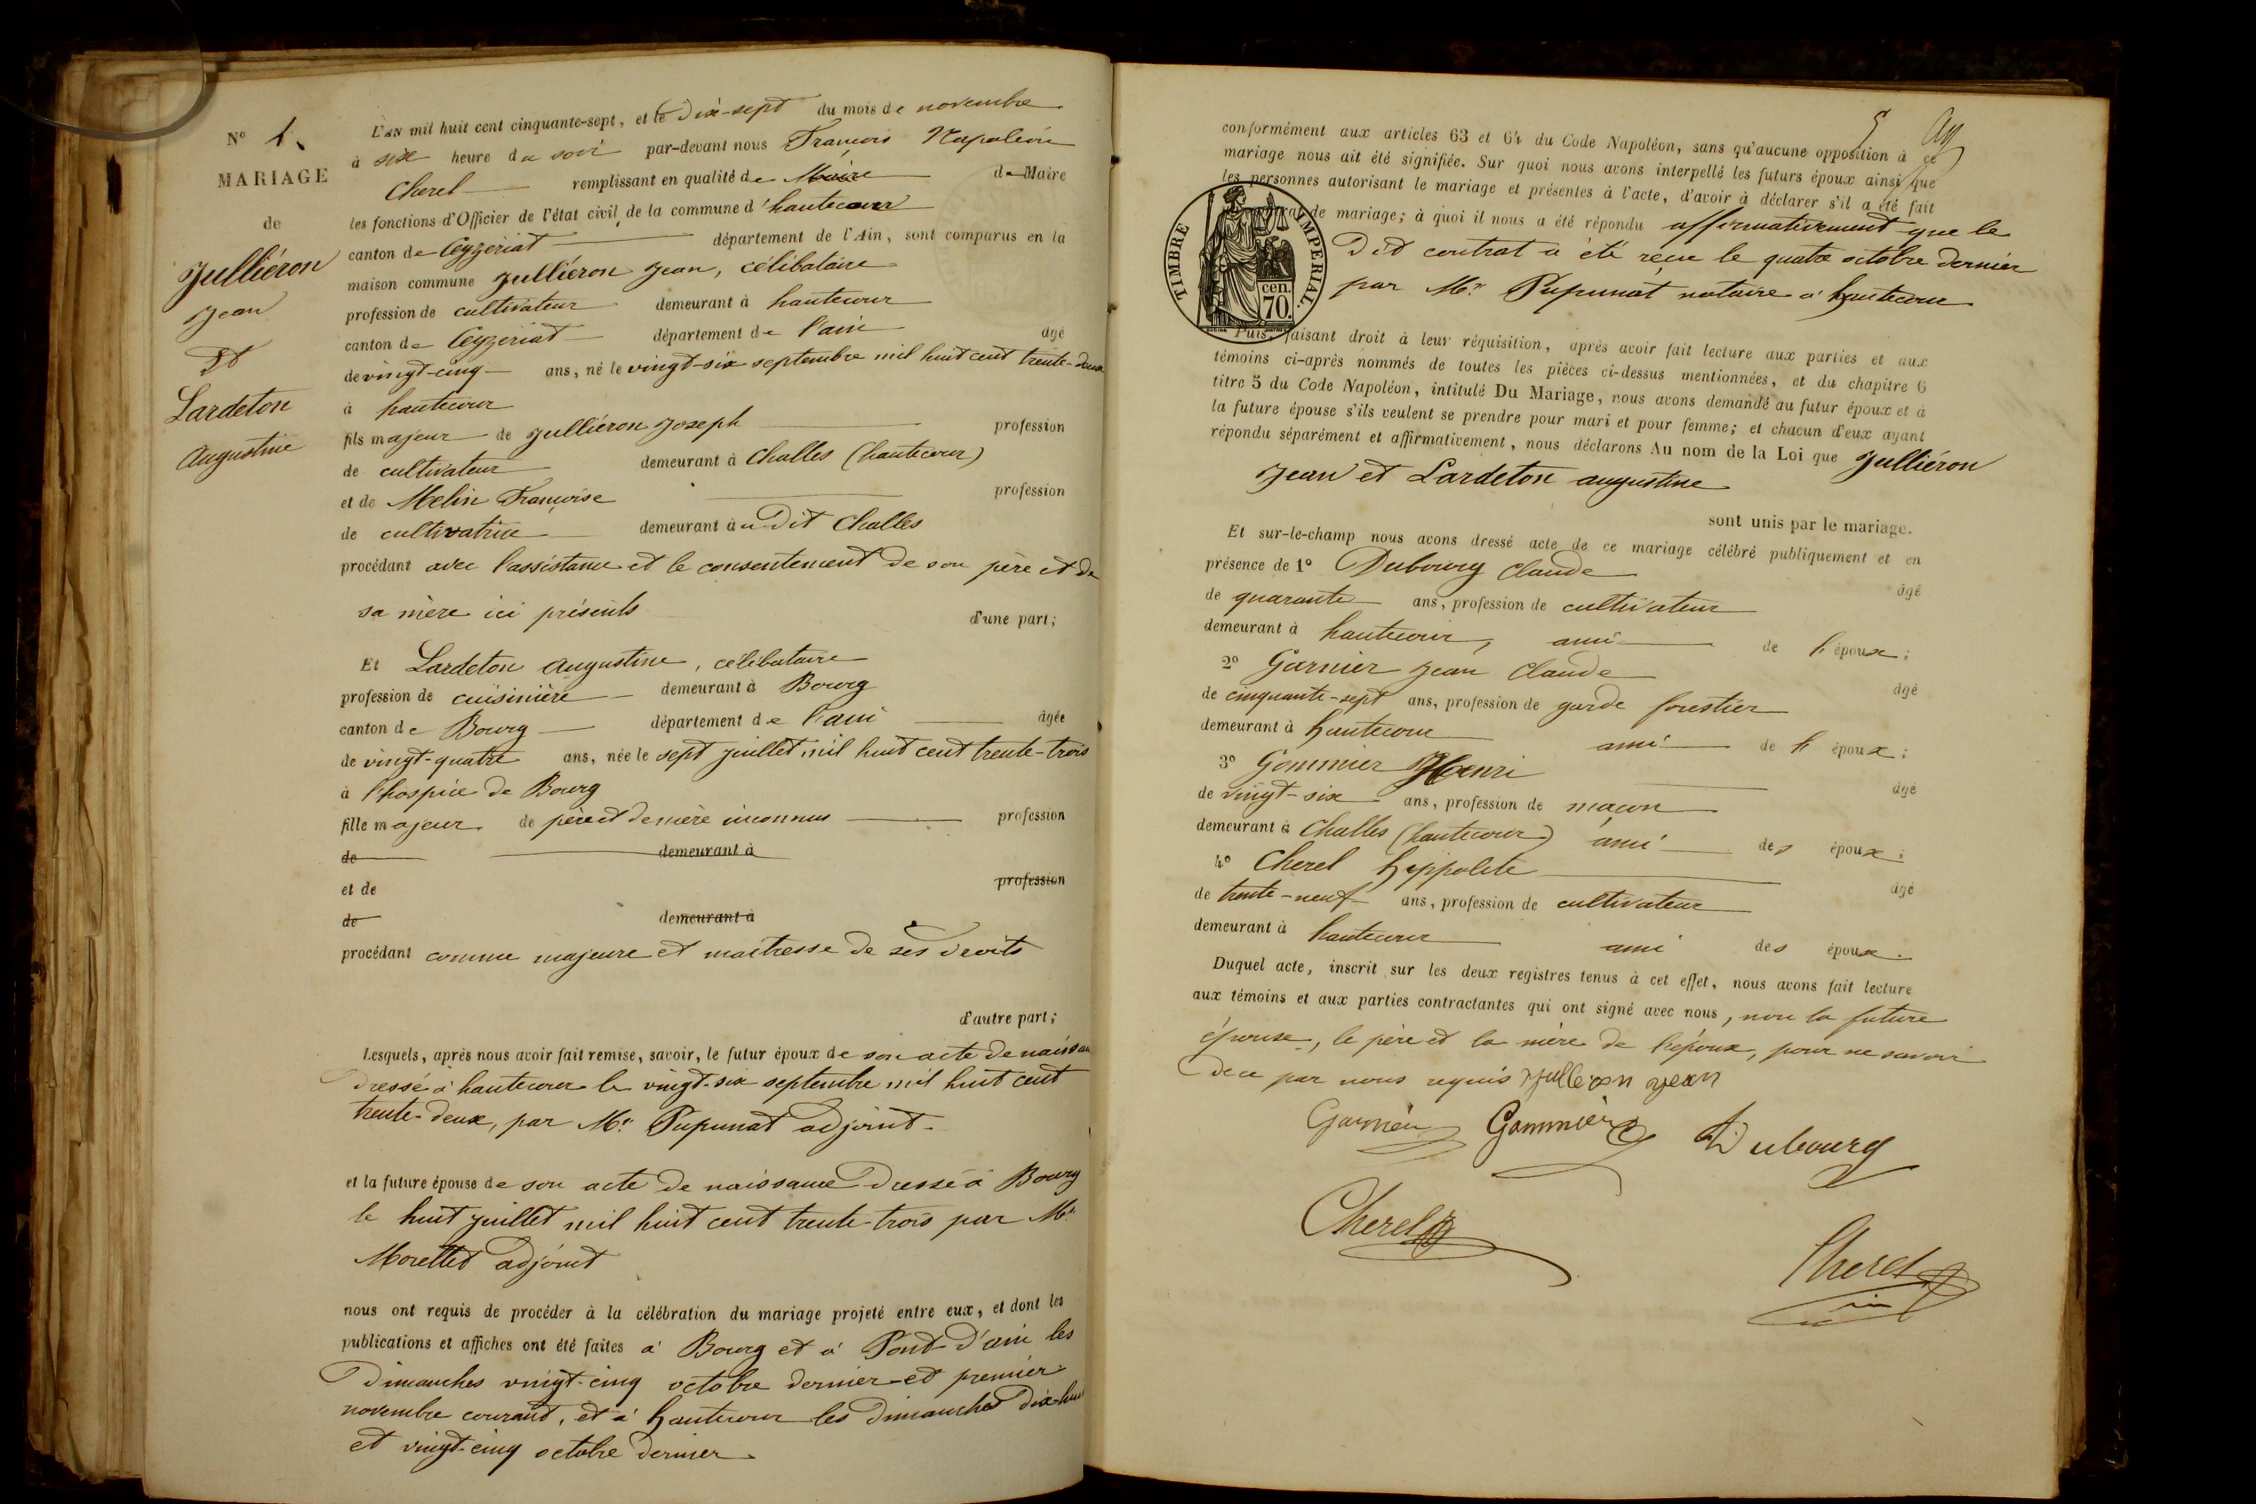 N° 1.
MARIAGE
de
Julliéron
Jean
Et
Lardeton
Augustine
L'AN mil huit cent cinquante-sept, et le Dix-sept du mois de novembre
à six heure du soir par-devant nous François Napoléon
Cherel remplissant en qualité de Maire de Maire
les fonctions d'Officier de l'état civil de la commune d'hautecour
canton de Ceyzeriat département de l'Ain, sont comparus en la
maison commune Julliéron Jean, célibataire
profession de cultivateur demeurant à hautecour
canton de Ceyzeriat département de l'ain âgé
de vingt-cinq ans, né le vingt-six septembre mil huit cent trente-deux
à hautecour
fils majeur de Julliéron Joseph profession
de cultivateur demeurant à Challes (hautecour)
et de Melin Françoise profession
de cultivatrice demeurant à u Dit Challes
procédant avec l'assistance et le consentement de son père et de
sa mère ici présents
d'une part;
Et Lardeton Augustine, célibataire
profession de cuisinière demeurant à Bourg
canton de Bourg département de l'ain âgée
de vingt-quatre ans, née le sept juillet mil huit cent trente-trois
à l'hospice de Bourg
fille majeur de père et de mère inconnus profession
de demeurant à
et de profession
de demeurant à
procédant comme majeure et maitresse de ses droits
d'autre part;
Lesquels, après nous avoir fait remise, savoir, le futur époux de son acte de naissan
Dressé à hautecour le vingt-six septembre mil huit cent
trente-deux, par Mr. Pupunat adjoint.
et la future épouse de son acte de naissance Dressé à Bourg
le huit juillet mil huit cent trente-trois par Mr.
Morellet adjoint
nous ont requis de procéder à la célébration du mariage projeté entre eux, et dont les
publications et affiches ont été faites à Bourg et à Pont-d'ain les
Dimanches vingt-cinq octobre dernier et premier
novembre courant, et à hautecour les Dimanches Dix-huit
et vingt-cinq octobre dernier
5
conformément aux articles 63 et 64 du Code Napoléon, sans qu'aucune opposition à ce
mariage nous ait été signifiée. Sur quoi nous avons interpellé les futurs époux ainsi que
les personnes autorisant le mariage et présentes à l'acte, d'avoir à déclarer s'il a été fait
de mariage; à quoi il nous a été répondu affirmativement que le
Dit contrat a été reçu le quatre octobre dernier
par Mr. Pupunat notaire à hautecour
TIMBRE IMPERIAL.
cen.
70.
Puis, faisant droit à leur réquisition, après avoir fait lecture aux parties et aux
témoins ci-après nommés de toutes les pièces ci-dessus mentionnées, et du chapitre 6
titre 5 du Code Napoléon, intitulé Du Mariage, nous avons demandé au futur époux et à
la future épouse s'ils veulent se prendre pour mari et pour femme; et chacun d'eux ayant
répondu séparément et affirmativement, nous déclarons Au nom de la Loi que Julliéron
Jean et Lardeton augustine
sont unis par le mariage.
Et sur-le-champ nous avons dressé acte de ce mariage célébré publiquement et en
présence de 1° Dubourg Claude âgé
de quarante ans, profession de cultivateur
demeurant à hautecour, ami de l'époux;
2° Garnier Jean Claude âgé
de cinquante-sept ans, profession de garde forestier
demeurant à hautecour ami de l'époux;
3° Gommier Henri âgé
de vingt-six ans, profession de maçon
demeurant à Challes (hautecour) ami des époux;
4° Cherel hippolite âgé
de trente-neuf ans, profession de cultivateur
demeurant à hautecour ami des époux.
Duquel acte, inscrit sur les deux registres tenus à cet effet, nous avons fait lecture
aux témoins et aux parties contractantes qui ont signé avec nous, non la future
épouse, le père et la mère de l'époux, pour ne savoir
De ce par nous requis Julleron Jean
Garnier Gommier Dubourg
Cherel
Cherel